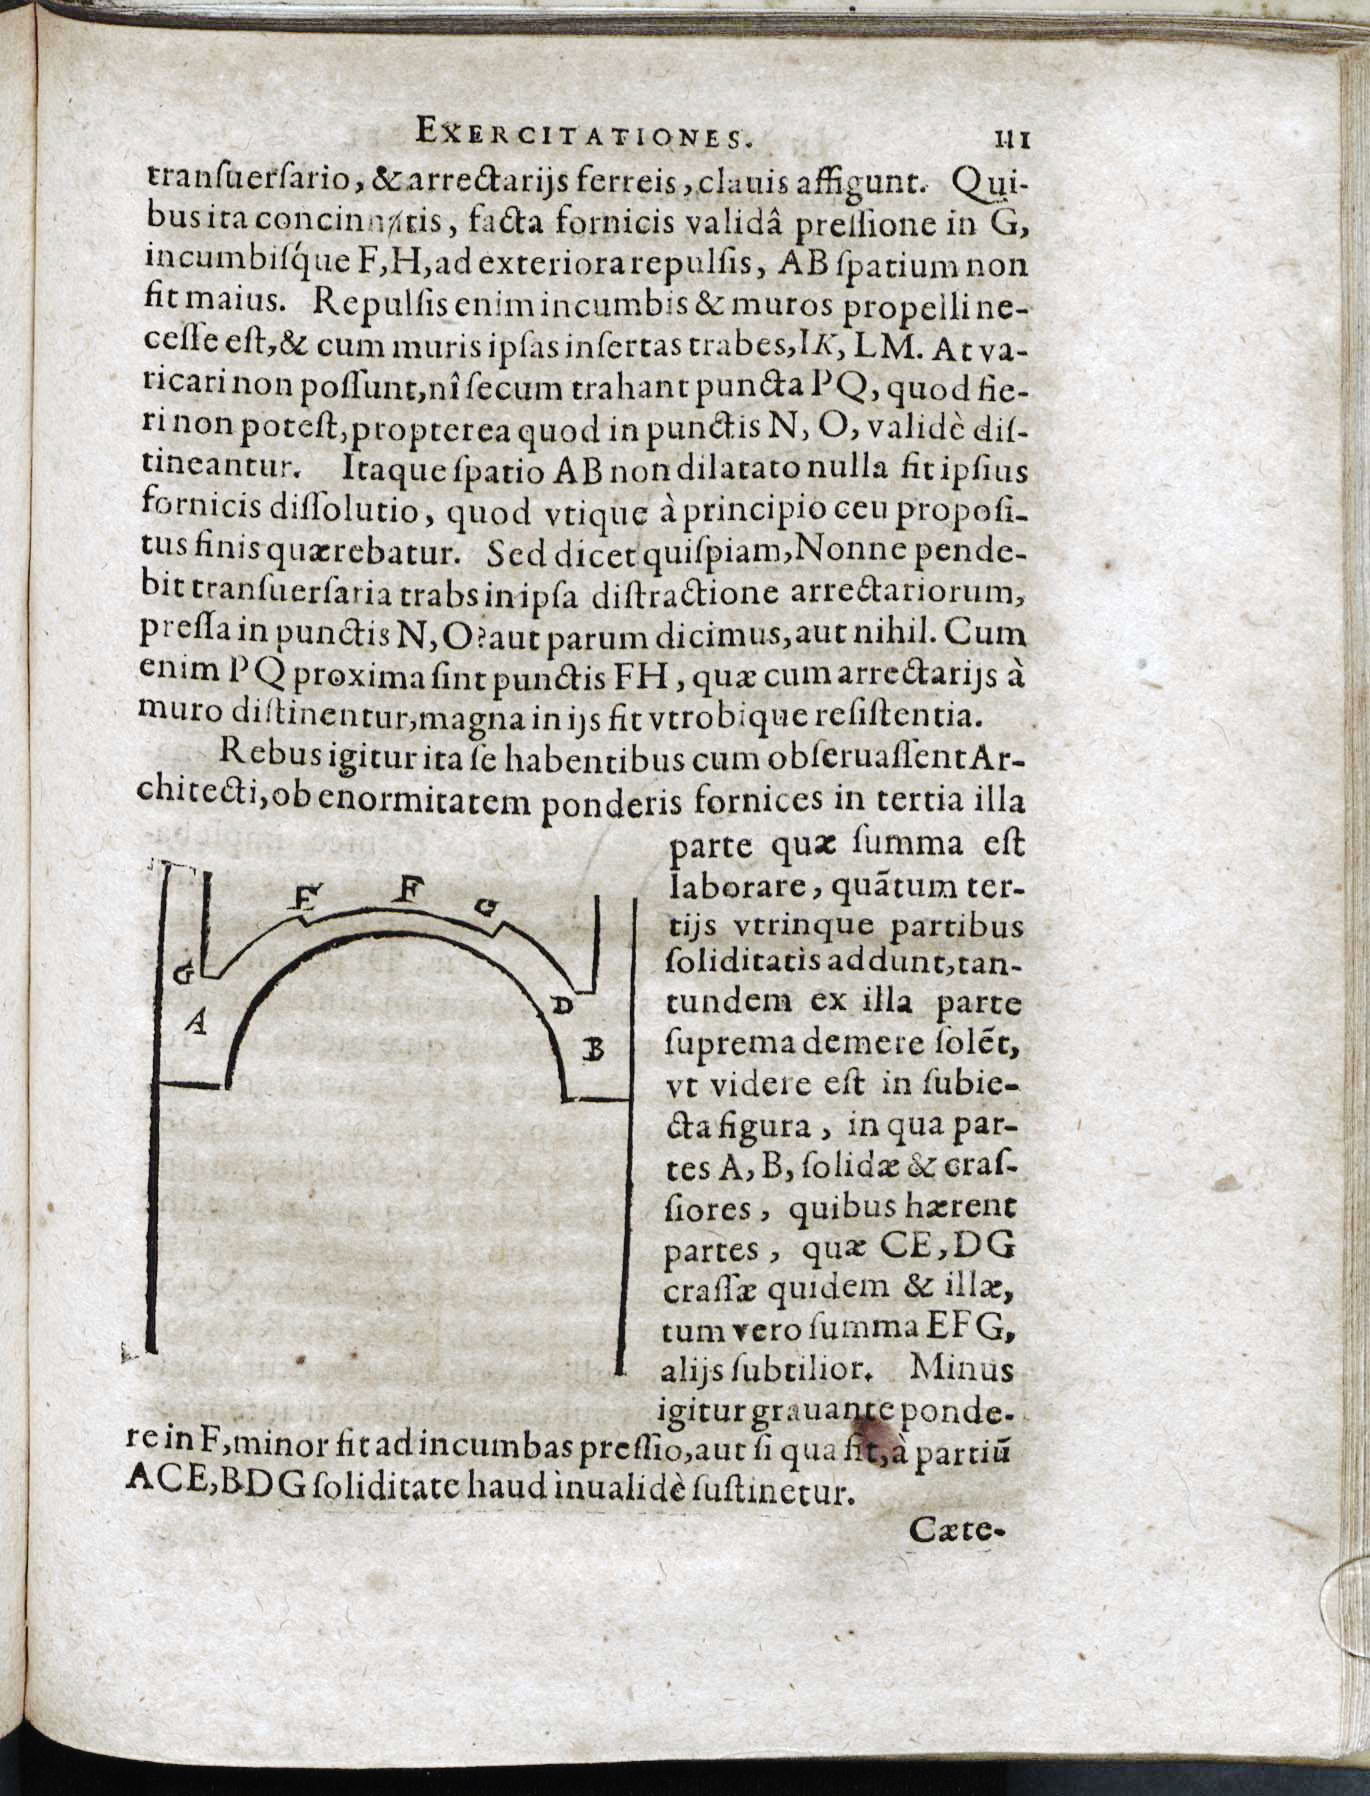 EXERCITATIONES. 111
tranſuerſario, & arrectarijs ferreis, clauis affigunt. Qui-
bus ita concinnatis, facta fornicis validâ preſſione in G,
incumbiſq́ue F, H, ad exteriora repulſis, AB ſpatium non
fit maius. Repulſis enim incumbis & muros propelli ne-
ceſſe eſt, & cum muris ipſas inſertas trabes, IK, LM. At va-
ricari non poſſunt, nî ſecum trahant puncta PQ, quod fie-
ri non poteſt, propterea quod in punctis N, O, validè diſ-
tineantur. Itaque ſpatio AB non dilatato nulla fit ipſius
fornicis diſſolutio, quod vtique à principio ceu propoſi-
tus finis quærebatur. Sed dicet quiſpiam, Nonne pende-
bit tranſuerſaria trabs in ipſa diſtractione arrectariorum,
preſſa in punctis N, O? aut parum dicimus, aut nihil. Cum
enim PQ proxima ſint punctis FH, quæ cum arrectarijs à
muro diſtinentur, magna in ijs fit vtrobique reſiſtentia.
Rebus igitur ita ſe habentibus cum obſeruaſſent Ar-
chitecti, ob enormitatem ponderis fornices in tertia illa
parte quæ ſumma eſt
laborare, quãtum ter-
tijs vtrinque partibus
ſoliditatis addunt, tan-
tundem ex illa parte
ſuprema demere ſolẽt,
vt videre eſt in ſubie-
cta figura, in qua par-
tes A, B, ſolidæ & craſ-
ſiores, quibus hærent
partes, quæ CE, DG
craſſæ quidem & illæ,
tum vero ſumma EFG,
alijs ſubtilior. Minus
igitur grauante ponde-
re in F, minor fit ad incumbas preſſio, aut ſi qua fit, à partiũ
ACE, BDG ſoliditate haud inualidè ſuſtinetur.
Cæte-
E F G
G D
A B